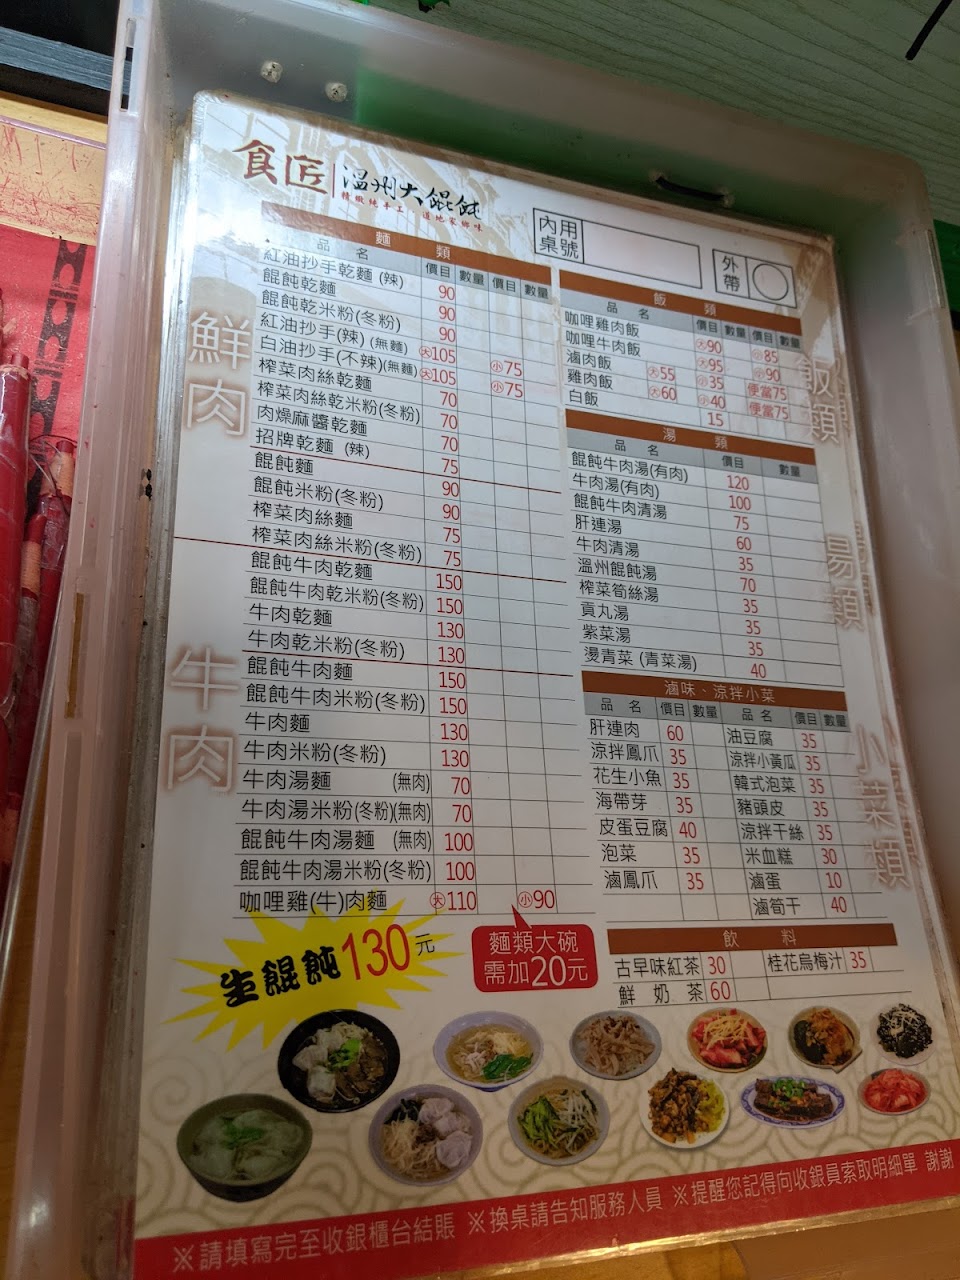 食匠 溫州大餛飩
精緻純手工 道地家鄉味
內用桌號
外帶
麵類
品名 價目 數量 價目 數量
紅油抄手乾麵(辣) 90
餛飩乾麵 90
餛飩乾米粉(冬粉) 90
紅油抄手(辣)(無麵) 大105 小75
白油抄手(不辣)(無麵) 大105 小75
榨菜肉絲乾麵 70
榨菜肉絲乾米粉(冬粉) 70
肉燥麻醬乾麵 75
招牌乾麵(辣)
餛飩麵 90
餛飩米粉(冬粉) 90
榨菜肉絲麵 75
榨菜肉絲米粉(冬粉) 75
餛飩牛肉乾麵 150
餛飩牛肉乾米粉(冬粉) 150
牛肉乾麵 130
牛肉乾米粉(冬粉) 130
餛飩牛肉麵 150
餛飩牛肉米粉(冬粉) 150
牛肉麵 130
牛肉米粉(冬粉) 130
牛肉湯麵 (無肉) 70
牛肉湯米粉(冬粉)(無肉) 70
餛飩牛肉湯麵 (無肉) 100
餛飩牛肉湯米粉(冬粉) 100
咖哩雞(牛)肉麵 大110 小90
鮮肉
牛肉
飯類
品名 價目 數量 價目 數量
咖哩雞肉飯 大90 小85
咖哩牛肉飯 大95 小90
滷肉飯 大55 小35 便當75
雞肉飯 大60 小40 便當75
白飯 15
飯類
湯類
品名 價目 數量
餛飩牛肉湯(有肉) 120
牛肉湯(有肉) 100
餛飩牛肉清湯 75
肝連湯 60
牛肉清湯 35
溫州餛飩湯 70
榨菜筍絲湯 35
貢丸湯 35
紫菜湯 35
燙青菜(青菜湯) 40
湯類
滷味、涼拌小菜
品名 價目 數量 品名 價目 數量
肝連肉 60 油豆腐 35
涼拌鳳爪 35 涼拌小黃瓜 35
花生小魚 35 韓式泡菜 35
海帶芽 35 豬頭皮 35
皮蛋豆腐 40 涼拌干絲 35
泡菜 35 米血糕 30
滷鳳爪 35 滷蛋 10
滷筍干 40
小菜類
飲料
古早味紅茶 30 桂花烏梅汁 35
鮮奶茶 60
生餛飩130元
麵類大碗
需加20元
※請填寫完至收銀櫃台結賬 ※換桌請告知服務人員 ※提醒您記得向收銀員索取明細單 謝謝